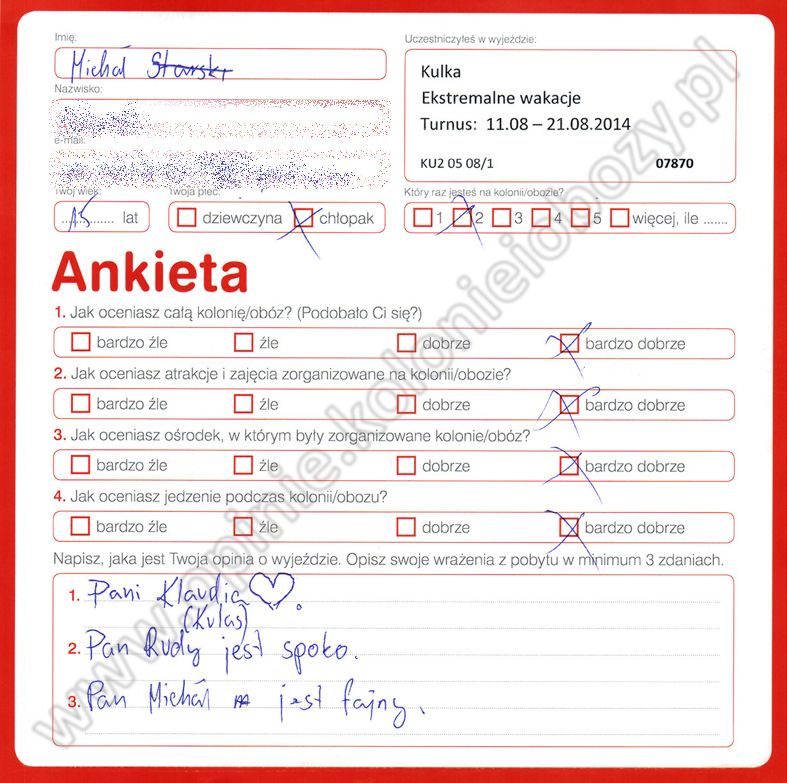 Imię:
Michał Starski
Nazwisko:
e-mail:
Twój wiek:
15 lat
Twoja płeć:
dziewczyna chłopak
Uczestniczyłeś w wyjeździe:
Kulka
Ekstremalne wakacje
Turnus: 11.08 – 21.08.2014
KU2 05 08/1 07870
Który raz jesteś na kolonii/obozie?
1 2 3 4 5 więcej, ile .......
Ankieta
1. Jak oceniasz całą kolonię/obóz? (Podobało Ci się?)
bardzo źle źle dobrze bardzo dobrze
2. Jak oceniasz atrakcje i zajęcia zorganizowane na kolonii/obozie?
bardzo źle źle dobrze bardzo dobrze
3. Jak oceniasz ośrodek, w którym były zorganizowane kolonie/obóz?
bardzo źle źle dobrze bardzo dobrze
4. Jak oceniasz jedzenie podczas kolonii/obozu?
bardzo źle źle dobrze bardzo dobrze
Napisz, jaka jest Twoja opinia o wyjeździe. Opisz swoje wrażenia z pobytu w minimum 3 zdaniach.
1. Pani Klaudia ♡.
(Kulas)
2. Pan Rudy jest spoko.
3. Pan Michał jest fajny.
www.opinie.kolonieiobozy.pl